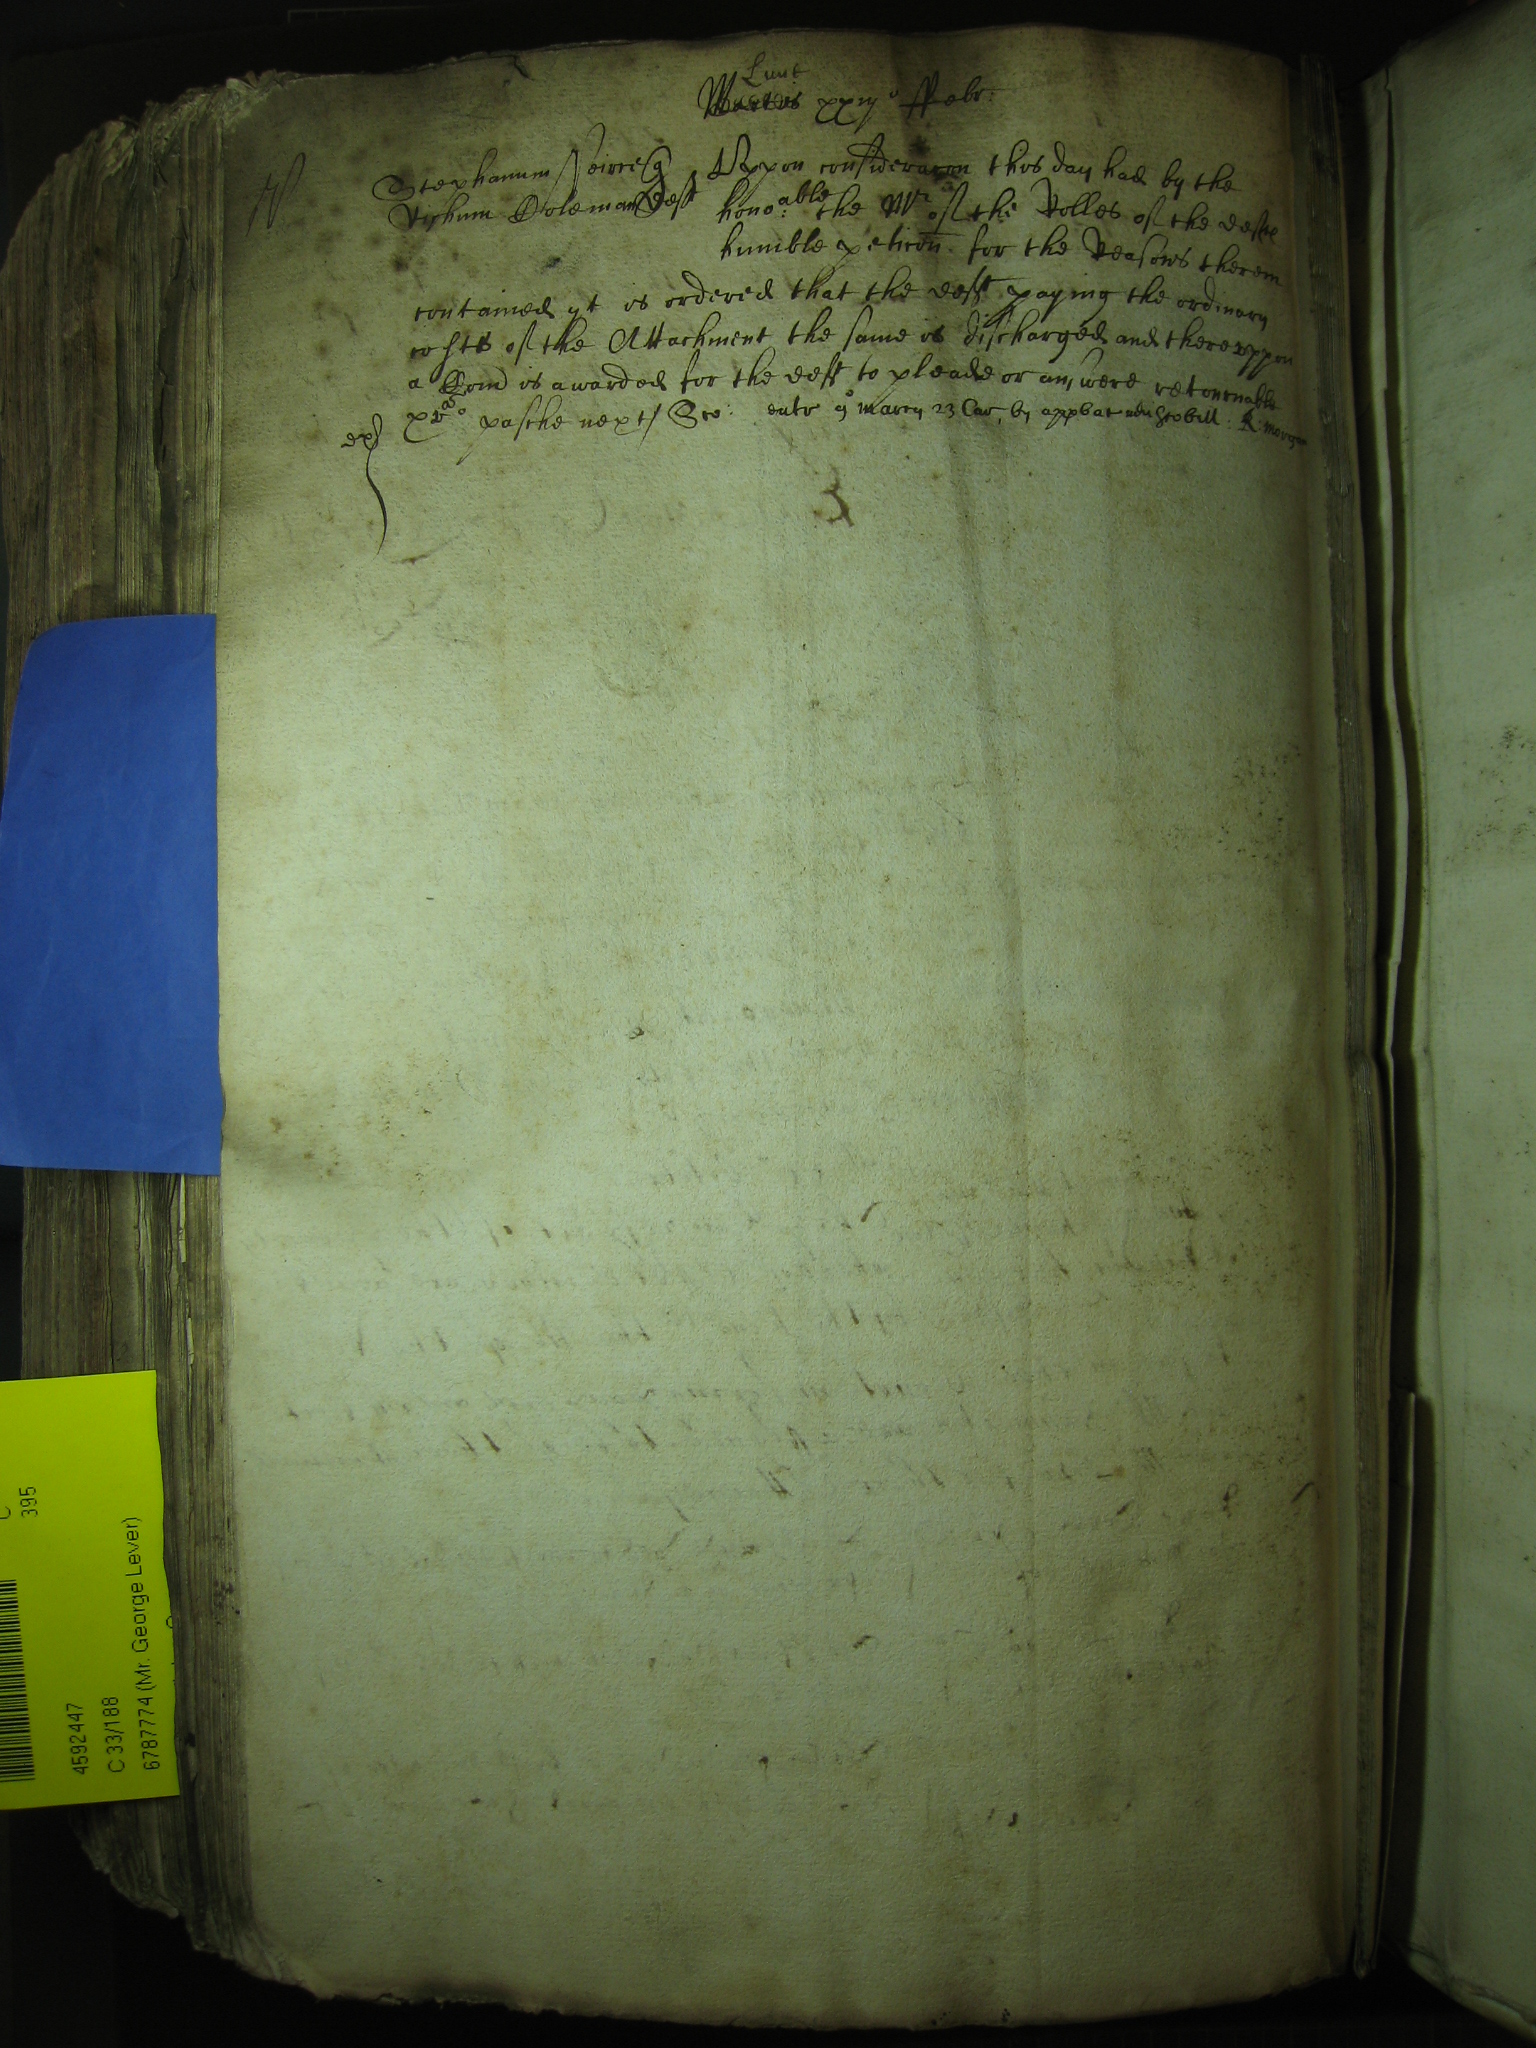 Lune
Martis xxiijo ffebr:
Stephanum Peirce q
Richum Coleman Deft
Uppon consideracon this day had by the
hono:able the Mr of the Rolles of the defte
humble peticon for the Reasons therein
contained yt is ordered that the deft paying the ordinary
costs of the Attachment the same is discharged and thereuppon
a Com is awarded for the deft to pleade or answere retournable
xva pasche next
entr 9o marcij 23 Car, by
exr
4592447
C 33/188
6787774 (Mr. George Lever)
C
395